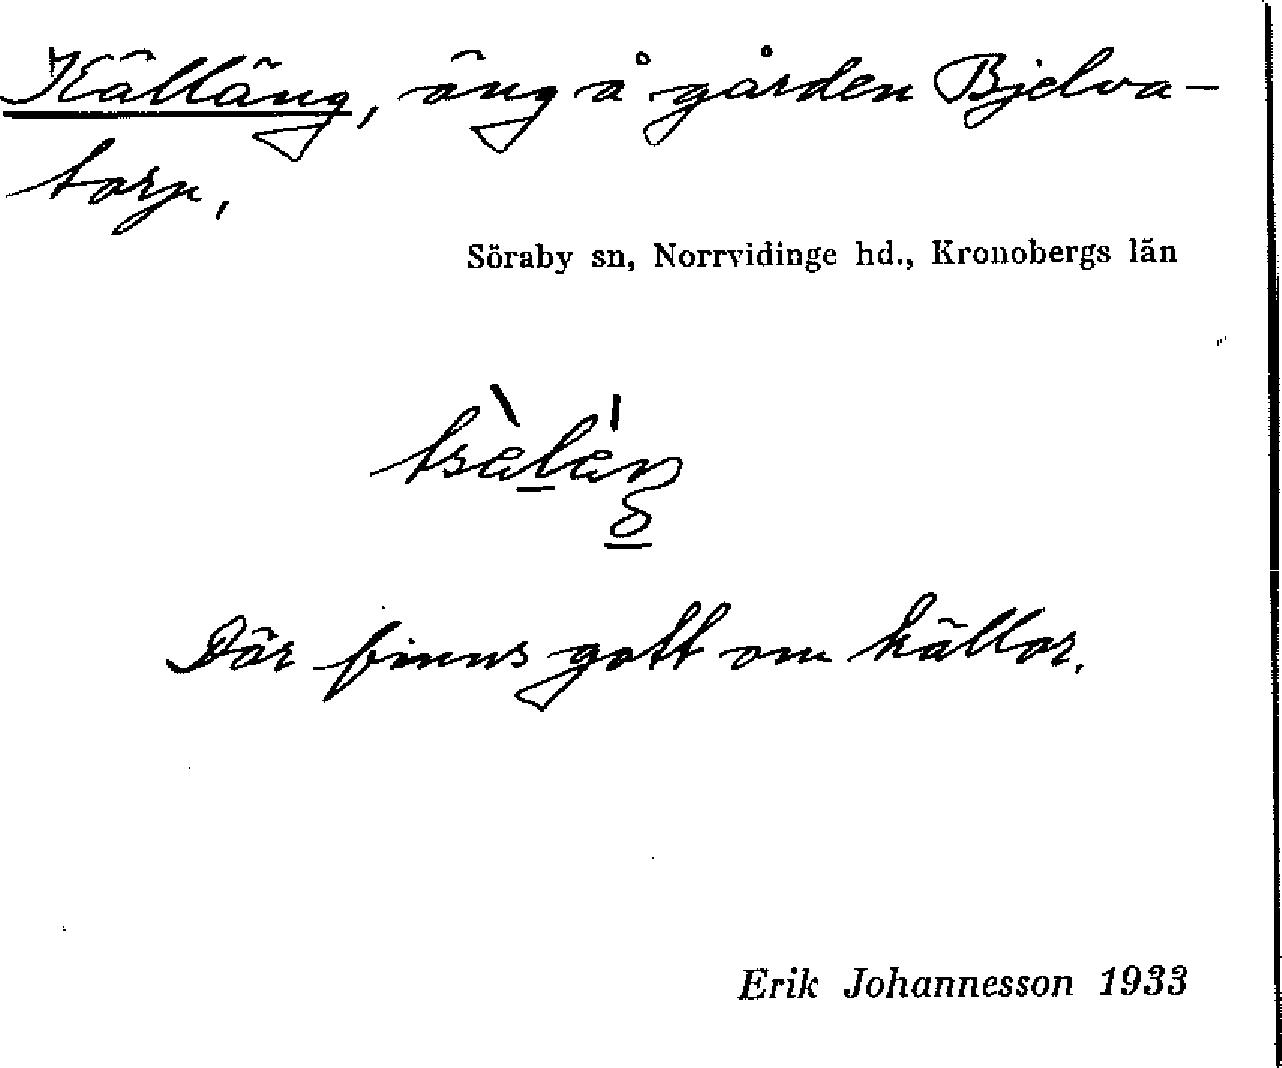 Källäng, äng å gården Bjelva-
torp,
Söraby sn, Norrvidinge hd., Kronobergs län
Där finns gott om källor.
Erik Johannesson 1933